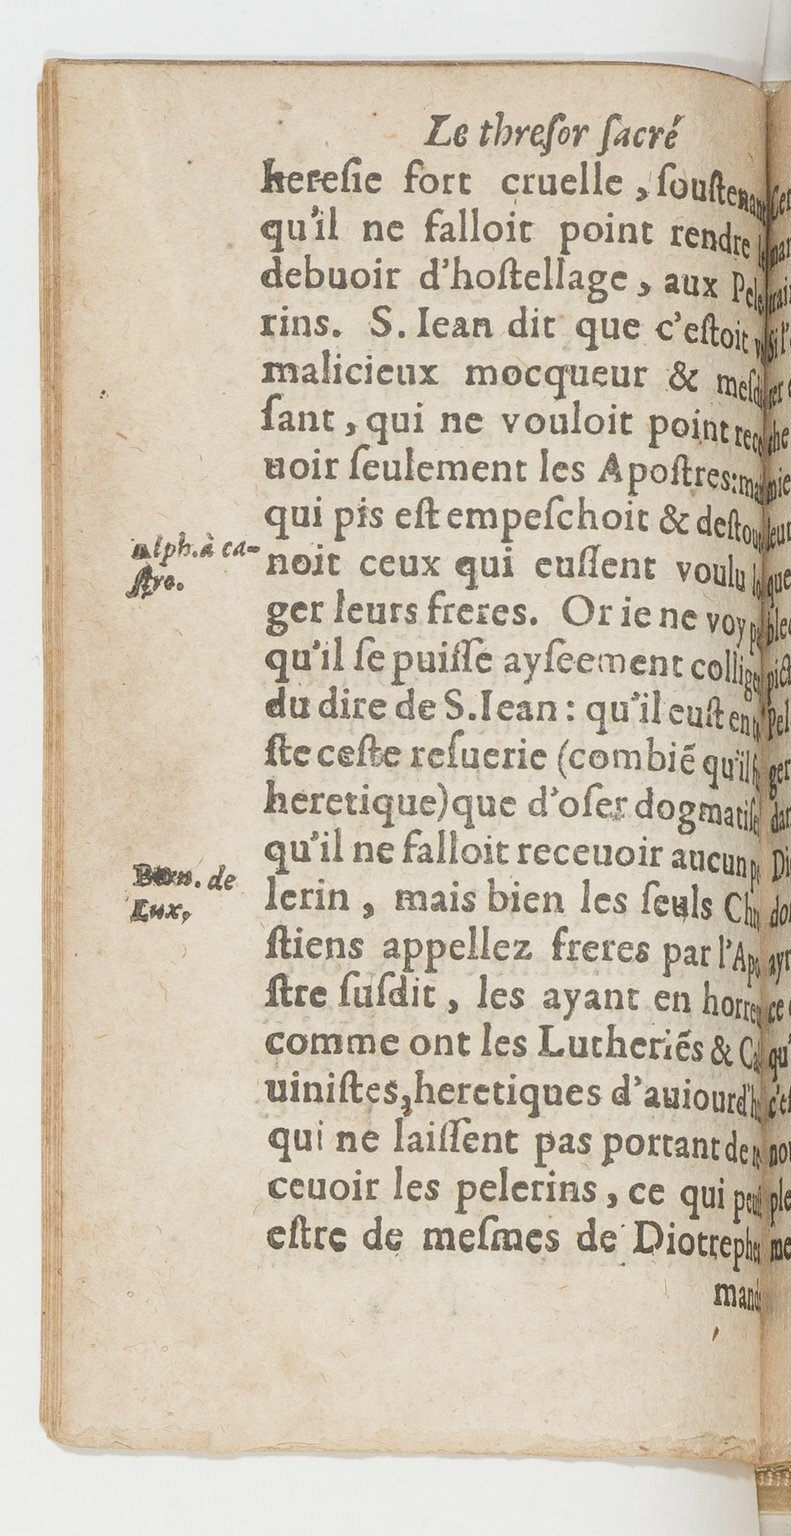 Le threſor ſacré
hereſie fort cruelle, ſouſtenan
qu'il ne falloit point rendre
debuoir d'hoſtellage, aux Pele
rins. S. Iean dit que c'eſtoit
malicieux mocqueur & meſdi
ſant, qui ne vouloit point rece
uoir ſeulement les Apoſtres: ma
qui pis eſt empeſchoit & deſtou
alph. à ca-
ſtro.
noit ceux qui euſſent voulu
ger leurs freres. Or ie ne voy
qu'il ſe puiſſe ayſeement collige
du dire de S. Iean: qu'il euſt en
ſte ceſte reſuerie (combié qu'il
heretique) que d'oſer dogmatiſe
qu'il ne falloit receuoir aucun
de
Lux,
lerin, mais bien les ſeuls Ch
ſtiens appellez freres par l'Apo
ſtre ſuſdit, les ayant en horre
comme ont les Lutheriés & Ca
uiniſtes, heretiques d'auiourd'h
qui ne laiſſent pas portant de
ceuoir les pelerins, ce qui
eſtre de meſmes de Diotrephe
mand